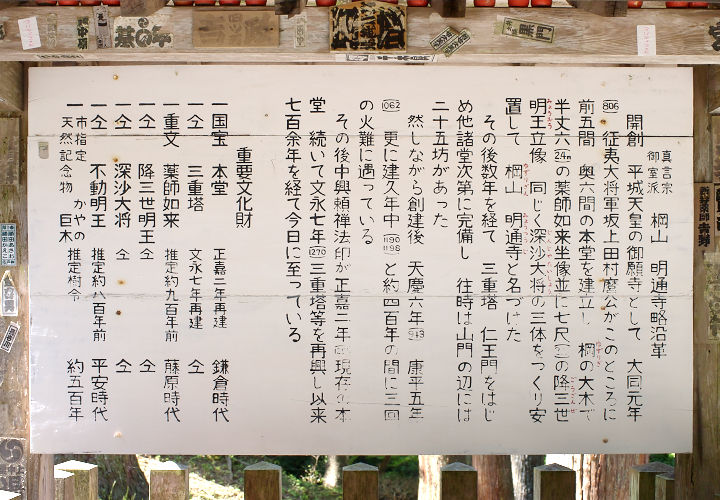 真言宗
御室派 棡山 明通寺略沿革
開創 平城天皇の御願寺として 大同元年
806 征夷大将軍坂上田村麿公がこのところに
前五間 奥六間の本堂を建立し 棡の大木で
半丈六 2.4m の薬師如来坐像並に七尺 の降三世
明王立像 同じく深沙大将の三体をつくり安
置して 棡山 明通寺と名づけた
その後数年を経て 三重塔 仁王門をはじ
め他諸堂次第に完備し 往時は山門の辺には
二十五坊があった
然しながら創建後 天慶六年 943 康平五年
1062 更に建久年中 1190 1198 と約四百年の間に三回
の火難に遇っている
その後中興頼禅法印が正嘉二年 現存の本
堂 続いて文永七年 1270 三重塔等を再興し以来
七百余年を経て今日に至っている
重要文化財
一国宝 本堂 正嘉二年再建 鎌倉時代
一仝 三重塔 文永七年再建 仝
一重文 薬師如来 推定約九百年前 藤原時代
一仝 降三世明王 仝 仝
一仝 深沙大将 仝 仝
一仝 不動明王 推定約八百年前 平安時代
一市指定
天然記念物 かやの巨木 推定樹令 約五百年